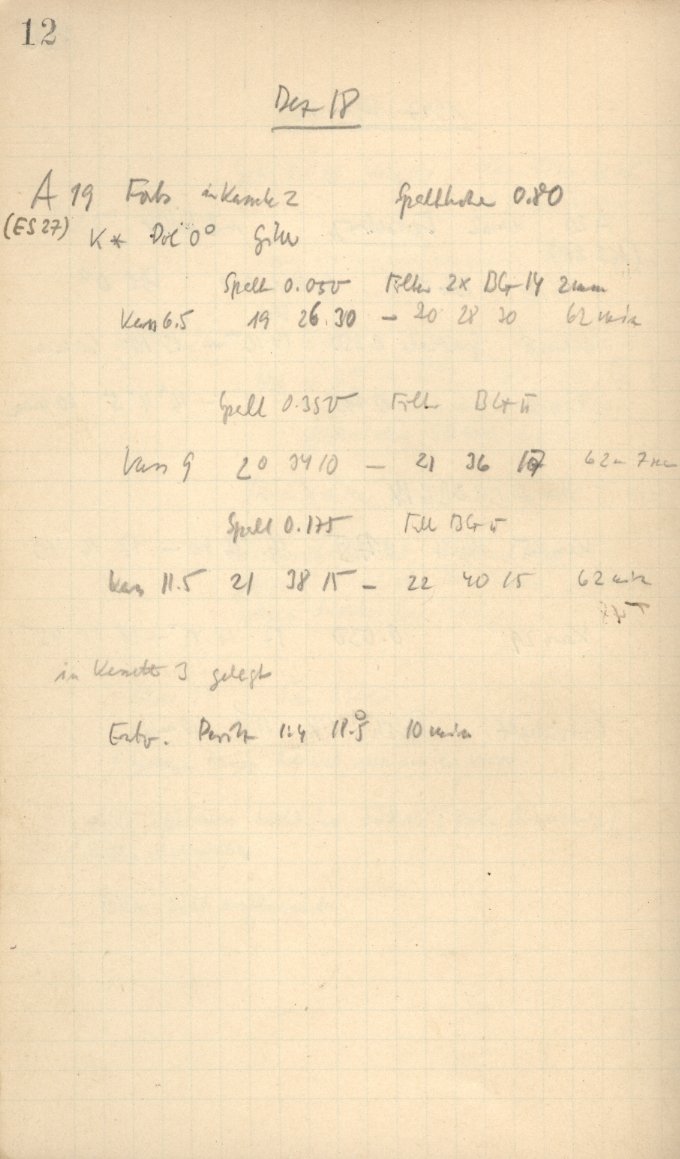 12
Dez 18
A 19 Farb in Kassette 2 Spalthöhe 0.80
(ES 27) K* Pol 0° Gitter
Spalt 0.050 Filter 2x BG 14 2mm
Kass 6.5 19 26.30 – 20 28 30 62 min
Spalt 0.350 Filter BG
Kass 9 20 34 10 – 21 36 17 62m 7sec
Spalt 0.175 Filt BG
Kass 11.5 21 38 15 – 22 40 15 62 min
in Kassette 3 gelegt
Entw. 1:4 18.5° 10 min